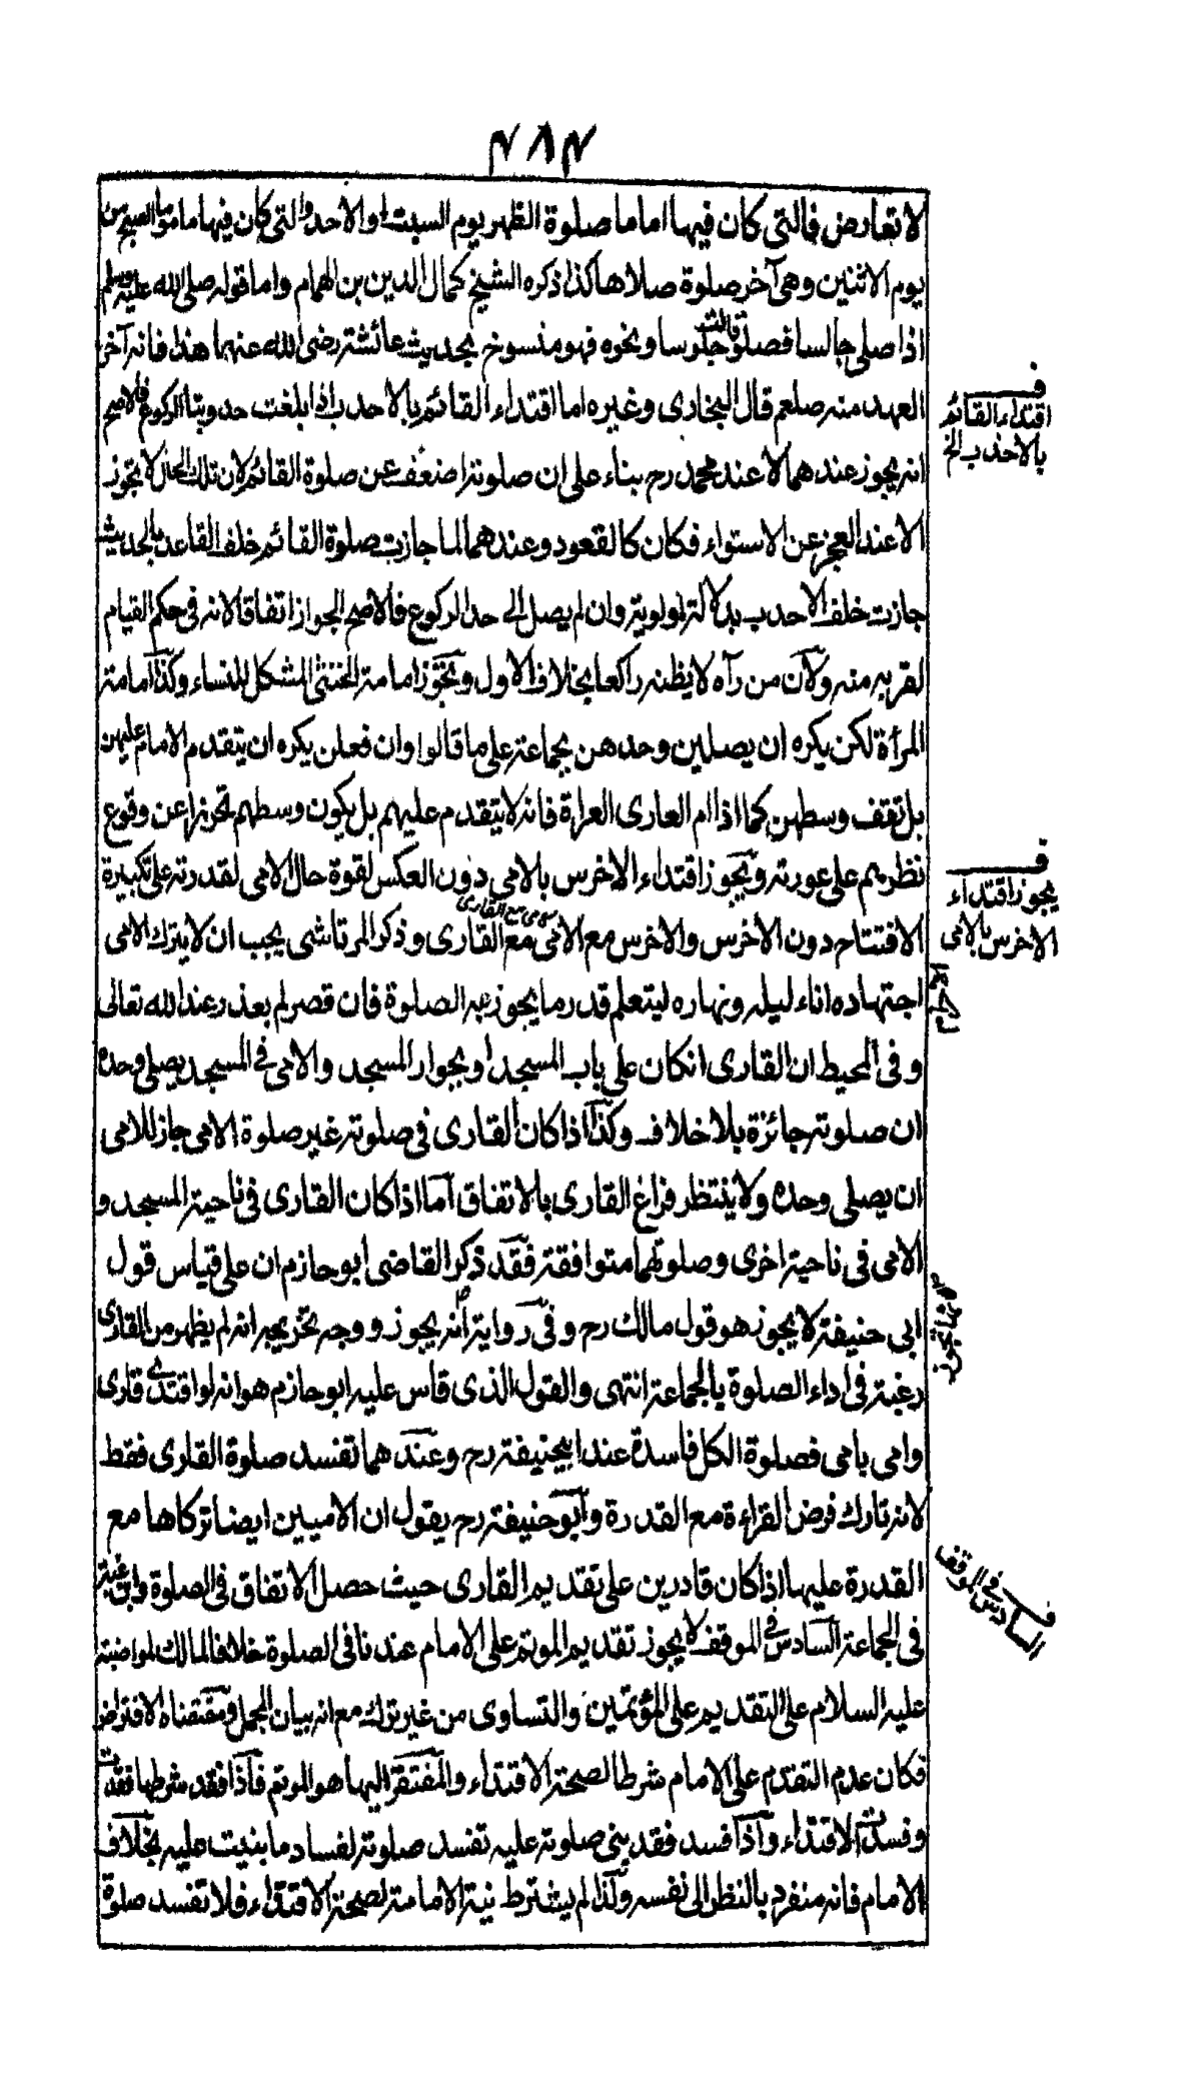 ٤٨٤
لا تعارض فالتى كان فيها اماما صلوة الظهر يوم السبت او الاحد والتى كان فيها ماموما الصبح من
يوم الاثنين وهى آخر صلوة صلاها كذا ذكره الشيخ كمال الدين بن الهمام واما قوله صلى الله عليه وسلم
اذا صلى جالسا فصلوا جلوسا ونحوه فهو منسوخ بحديث عائشة رضى الله عنها هذا فانه آخر
العهد منه صلعم قال البخارى وغيره اما اقتداء القائم بالاحدب اذا بلغت حدوبته الركوع فالاصح
انه يجوز عندهما لا عند محمد رح بناء على ان صلوته اضعف عن صلوة القائم لان تلك الحال لا تجوز
الا عند العجز عن الاستواء فكان كالقعود وعندهما لما جازت صلوة القائم خلف القاعد بالحديث
جازت خلف الاحدب بدلالته لولويته وان لم يصل الى حد الركوع فالاصح الجواز اتفاقا لانه فى حكم القيام
لقربه منه ولان من رآه لا يظنه راكعا بخلاف الاول وتجوز امامة الخنثى المشكل للنساء وكذا امامة
المرأة لكن يكره ان يصلين وحدهن بجماعة على ما قالوا وان فعلن يكره ان يتقدم الامام عليهن
بل تقف وسطهن كما اذا ام العارى العراة فانه لا يتقدم عليهم بل يكون وسطهم تحرزا عن وقوع
نظرهم على عورته ويجوز اقتداء الاخرس بالامى دون العكس لقوة حال الامى لقدرته على تكبيرة
الافتتاح دون الاخرس والاخرس مع الامى مع القارى وذكر المرتاشى يجب ان لا يترك الامى
اجتهاده اناء ليله ونهاره ليتعلم قدر ما يجوز به الصلوة فان قصر لم يعذر عند الله تعالى
وفى المحيط ان القارى انكان على باب المسجد او بجوار المسجد والامى فى المسجد يصلى وحده
ان صلوته جائزة بلا خلاف وكذا اذا كان القارى فى صلوته غير صلوة الامى جاز للامى
ان يصلى وحده ولا ينتظر فراغ القارى بالاتفاق اما اذا كان القارى فى ناحية المسجد و
الامى فى ناحية اخرى وصلوتهما متوافقة فقد ذكر القاضى ابو حازم ان على قياس قول
ابى حنيفة لا يجوز هو قول مالك رح وفى رواية انه يجوز ووجه تخريجه انه لم يظهر من القارى
رغبة فى اداء الصلوة بالجماعة انتهى والقول الذى قاس عليه ابو حازم هو انه لو اقتدى قارى
وامى بامى فصلوة الكل فاسدة عند ابيحنيفة رح وعندهما تفسد صلوة القارى فقط
لانه تارك فرض القراءة مع القدرة وابو حنيفة رح يقول ان الاميين ايضا تركاها مع
القدرة عليها اذا كان قادرين على تقديم القارى حيث حصل الاتفاق فى الصلوة
فى الجماعة السادس فى الموقف لا يجوز تقديم الموتم على الامام عندنا فى الصلوة خلافا لمالك لمواظبته
عليه السلام على التقديم على المؤتمين والتساوى من غير ترك مع انه بيان المجمل
فكان عدم التقدم على الامام شرطا لصحة الاقتداء والمفتقر اليها هو الموتم فاذا فقد شرطها فقدت
وفسدت الاقتداء واذا فسد فقد بنى صلوته عليه تفسد صلوته لفساد ما بنيت عليه بخلاف
الامام فانه منفرد بالنظر الى نفسه وكذا لم يشترط نية الامامة لصحة الاقتداء فلا تفسد صلوة
ف
اقتداء القائم
بالاحدب الخ
ف
يجوز اقتداء
الاخرس بالامى
ف
السادس فى الموقف